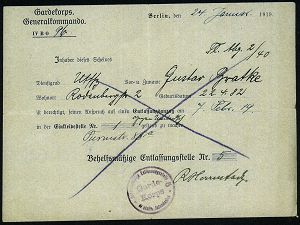 Gardekorps.
Generalkommando.
Berlin, den 24 Januar 1919.
IV B O 96
2/40
Inhaber dieses Scheines
Dienstgrad Uffz Vor-u. Zuname Gustav Bratke
Wohnort Rodenbergstr 2 Geburtsdatum 22.4.82
ist berechtigt, seinen Anspruch auf einen Entlassungsanzug am 7. Febr. 19
in der Einkleidestelle Nr. 1 geltend zu machen
Behelfsmäßige Entlassungsstelle Nr. 6
Garde-
Korps